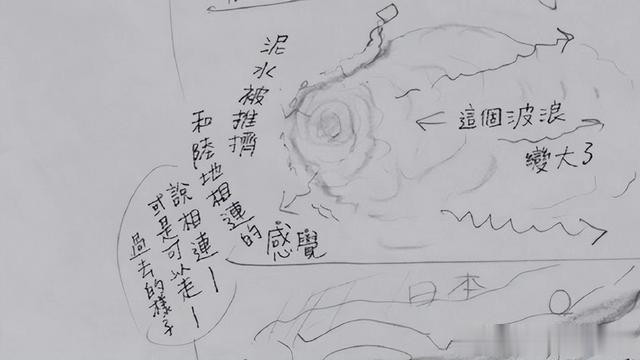 泥水被推擠
和陸地相連的
感覺
說相連
或是可以走
過去的樣子
這個波浪
變大了
日本